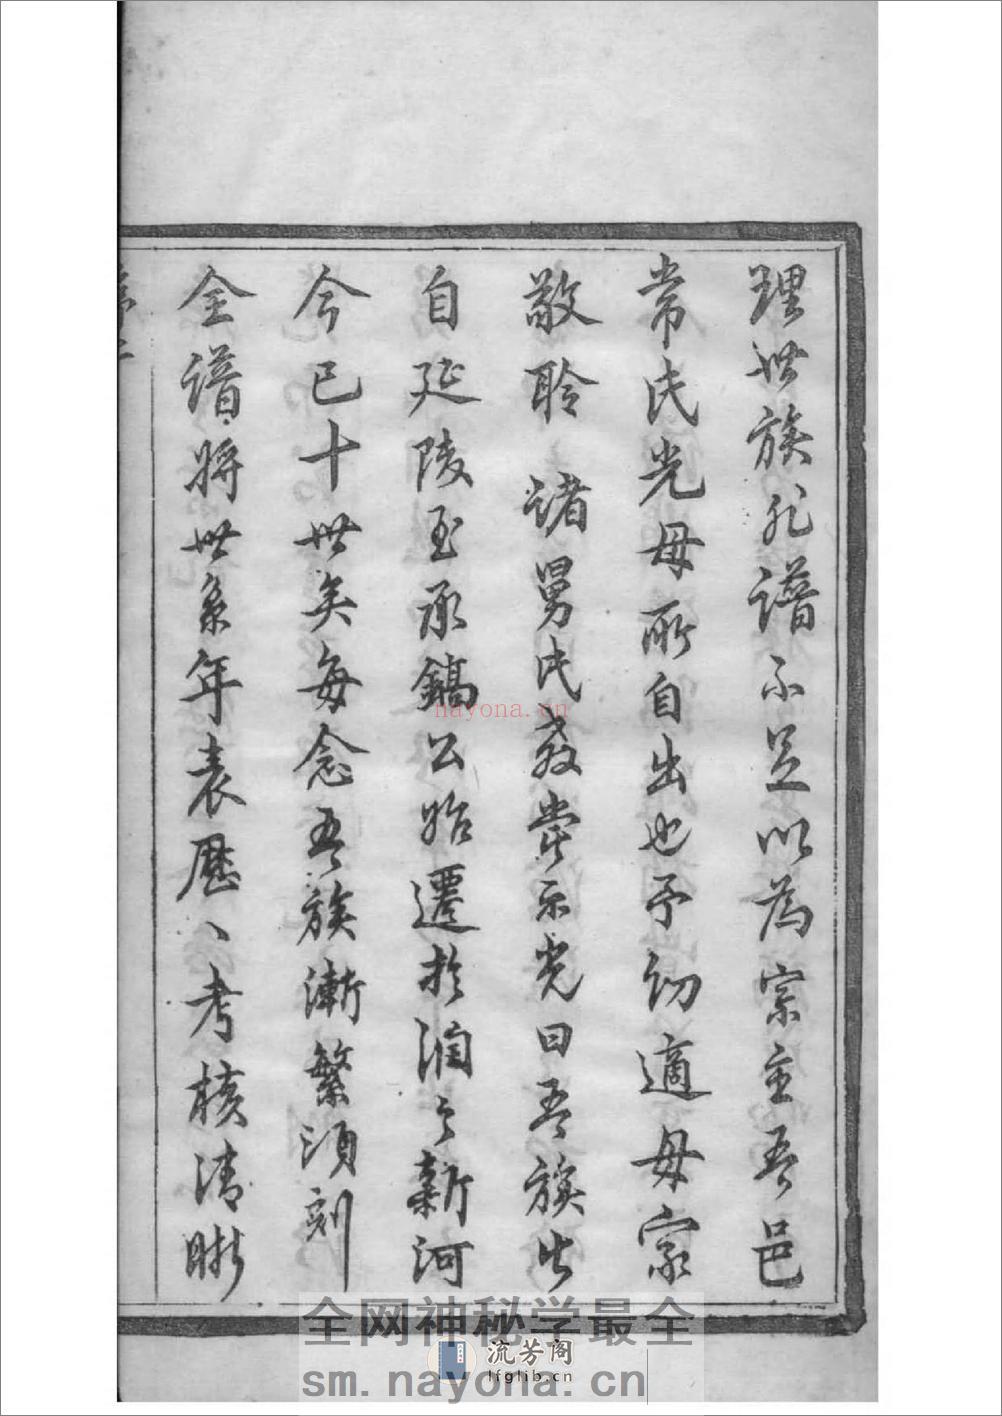 理世族非譜不足以為宗主吾邑
常氏光母所自出也予幼適母家
敬聆諸舅氏教嘗示光曰吾族出
自延陵至承鎬公始遷於潤之新河
今已十世矣每念吾族漸繁須刻
全譜將世系年表歷、考核清晰
序二
nayona.cn
全网神秘学最全
流芳阁
lfglib.cn
sm.nayona.cn